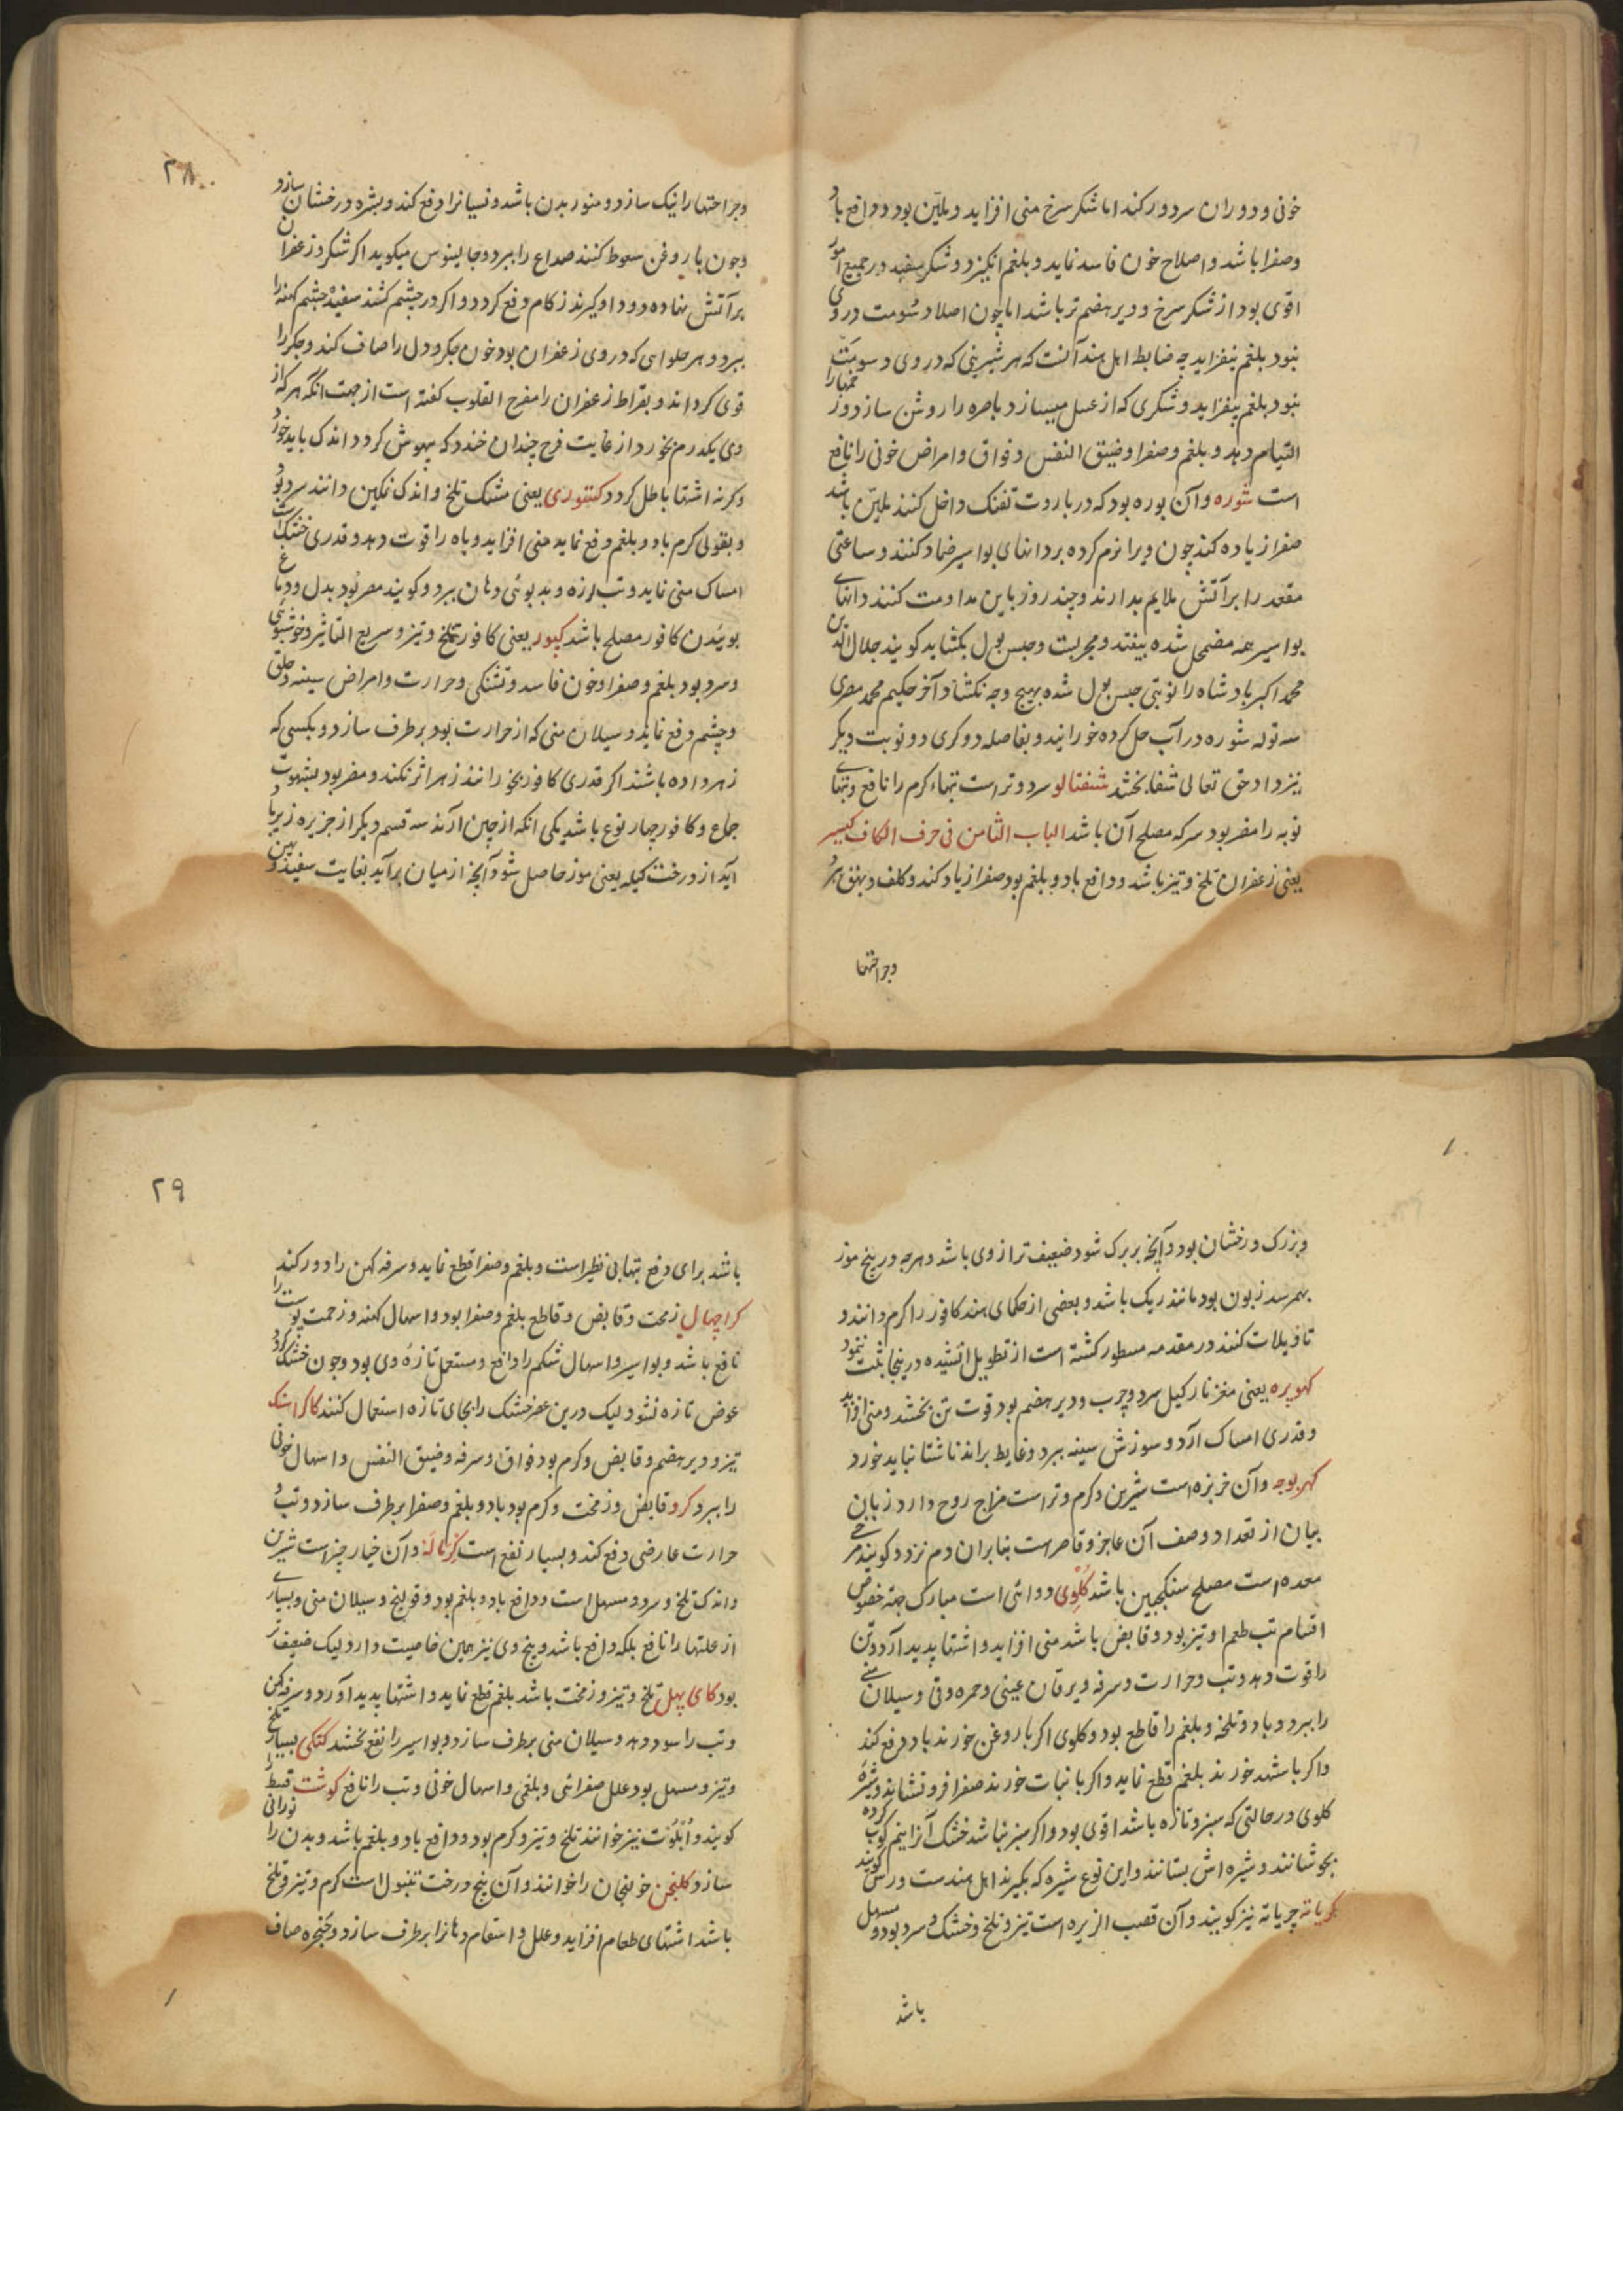 خونی و دوران سر دور کند اما شکر سرخ منی افزاید و ملین بود و دافع باد
و صفرا باشد و اصلاح خون فاسد نماید و بلغم انگیزد و شکر سفید در جمیع امور
اقوی بود از شکر سرخ و دیر هضم تر باشد اما چون اصلا دسومت در وی
نبود بلغم بنفزاید چه ضابط اهل هند آنست که هر شیرینی که در وی دسومت
نبود بلغم بنفزاید و شکری که از عسل میسازد باصره را روشن سازد و زخمها را
التیام دهد و بلغم و صفرا و ضیق النفس و فواق و امراض خونی را نافع
است شوره و آن بوره بود که در باروت تفنک داخل کنند ملین باشد
صفرا زیاده کند چون ویرا نرم کرده بر دانهای بواسیر ضماد کنند و ساعتی
مقعد را بر آتش ملایم بدارند و چند روز باین مداومت کنند دانهای
بواسیر همه مضمحل شده بیفتد و مجربست و حبس بول بکشاید کویند جلال الدین
محمد اکبر بادشاه را نوبتی حبس بول شده بهیچ وجه نکشاد آخر حکیم محمد مصری
سه توله شوره در آب حل کرده خورانید و بفاصله دو کری دو نوبت دیکر
نیز داد حق تعالی شفا بخشد شفتالو سرد و تر است تبهاء کرم را نافع و تبهای
نوبه را مضر بود سرکه مصلح آن باشد الباب الثامن فی حرف الکاف کیسر
یعنی زعفران تلخ و تیز باشد و دافع باد و بلغم بود صفرا زیاد کند و کلف و بهق برد
و جراحتها
۲۸
و جراحتها را نیک سازد و منور بدن باشد و نسیانرا دفع کند و بشره درخشان سازد
و چون با روغن سعوط کنند صداع را ببرد و جالینوس میکوید اکر شکر و زعفران
بر آتش نهاده دود او کیرند زکام دفع کردد و اکر در چشم کشند سفیدهٔ چشم کهنه را
ببرد و هر حلوایی که در وی زعفران بود خون جکر و دل را صاف کند و جکر را
قوی کرداند و بقراط زعفران را مفرح القلوب کفته است از جهت انکه هر که از
وی یکدرم بخورد از غایت فرح چندان خندد که بیهوش کردد اندک باید خورد
و کرنه اشتها باطل کردد کستوری یعنی مشک تلخ و اندک نمکین دانند سرد بود
و بقولی کرم باد و بلغم دفع نماید منی افزاید و باه را قوت دهد و قدری خشک است
امساک منی نماید و تب لرزه و بدبوئی دهان ببرد و کویند مضر بود بدل و دماغ
بوئیدن کافور مصلح باشد کپور یعنی کافور تلخ و تیز و سریع التاثیر و خوشبوی
و سرد بود بلغم و صفرا و خون فاسد و تشنکی و حرارت و امراض سینه و حلق
و چشم دفع نماید و سیلان منی که از حرارت بود برطرف سازد و بکسی که
زهر داده باشند اکر قدری کافور بخورانند زهر اثر نکند و مضر بود بشهوت
جماع و کافور چهار نوع باشد یکی انکه از چین ارند سه قسم دیکر از جزیره زیرباد
آید از درخت کیله یعنی موز حاصل شود آنچه از میان برآید بغایت سفید و پهن
و بزرک و درخشان بود و آنچه بر برک شود ضعیف تر از وی باشد و هرچه در بیخ موز
بهم رسد زبون بود مانند ریک باشد و بعضی از حکمای هند کافور را کرم دانند و
تاویلات کنند در مقدمه مسطور کشته است از تطویل اندیشیده درینجا ثبت ننمود
کهوپره یعنی مغز نارکیل سرد و چرب و دیر هضم بود قوت تن بخشد و منی افزاید
و قدری امساک آرد و سوزش سینه ببرد و غایط براند ناشتا نباید خورد
کهربوجه و آن خربزه است شیرین و کرم و تر است مزاج روح دارد زبان
بیان از تعداد وصف آن عاجز و قاصر است بنابران دم نزد و کویند مرخی
معده است مصلح سنکنجبین باشد کلوی دوائی است مبارک جهة خصوص
اقسام تب طعم او تیز بود و قابض باشد منی افزاید و اشتها پدید آرد و تن
را قوت دهد و تب و حرارت و سرفه و یرقان عینی و حمره و قی و سیلان منی
را ببرد و باد و تلخه و بلغم را قاطع بود و کلوی اکر با روغن خورند باد دفع کند
و اکر با شهد خورند بلغم قطع نماید و اکر با نبات خورند صفرا فرونشاند و شیره
کلوی در حالتی که سبز و تازه باشد اقوی بود و اکر سبز نباشد خشک آنرا نیم کوب کرده
بجوشانند و شیره اش بستانند و این نوع شیره که بکیرند اهل هند ست و رس کویند
کریاته چریاته نیز کویند و آن قصب الزیره است تیز و تلخ و خشک و سرد بود و مسهل
باشد
۲۹
باشد برای دفع تبها بی نظیر است و بلغم و صفرا قطع نماید و سرفه کهن را دور کند
کراچهال زمخت و قابض و قاطع بلغم و صفرا بود و اسهال کهنه و زحمت پوست را
نافع باشد و بواسیر و اسهال شکم را دافع و مستعمل تازهٔ وی بود و چون خشک کردد
عوض تازه نشود لیک درین عصر خشک را بجای تازه استعمال کنند کاکراسنک
تیز و دیر هضم و قابض و کرم بود فواق و سرفه و ضیق النفس و اسهال خونی
را ببرد کرو قابض و زمخت و کرم بود باد و بلغم و صفرا برطرف سازد و تب و
حرارت عارضی دفع کند و بسیار نفع است کرماله و آن خیار چنبر است شیرین
و اندک تلخ و سرد و مسهل است و دافع باد و بلغم بود و قولنج و سیلان منی و بسیاری
از علتها را نافع بلکه دافع باشد و بیخ وی نیز همین خاصیت دارد لیک ضعیف تر
بود کای پهل تلخ و تیز و زمخت باشد بلغم قطع نماید و اشتها پدید آورد و سرفه کهن
و تب را سود دهد و سیلان منی برطرف سازد و بواسیر را نفع بخشد کتکی بسیار تلخ
و تیز و مسهل بود علل صفرائی و بلغمی و اسهال خونی و تب را نافع کوشت قسط را
کویند و اپلوت نیز خوانند تلخ و تیز و کرم بود و دافع باد و بلغم باشد و بدن را نورانی
سازد کلنجن خولنجان را خوانند و آن بیخ درخت تنبول است کرم و تیز و تلخ
باشد اشتهای طعام افزاید و علل و اسقام دهانرا برطرف سازد و حنجره صاف